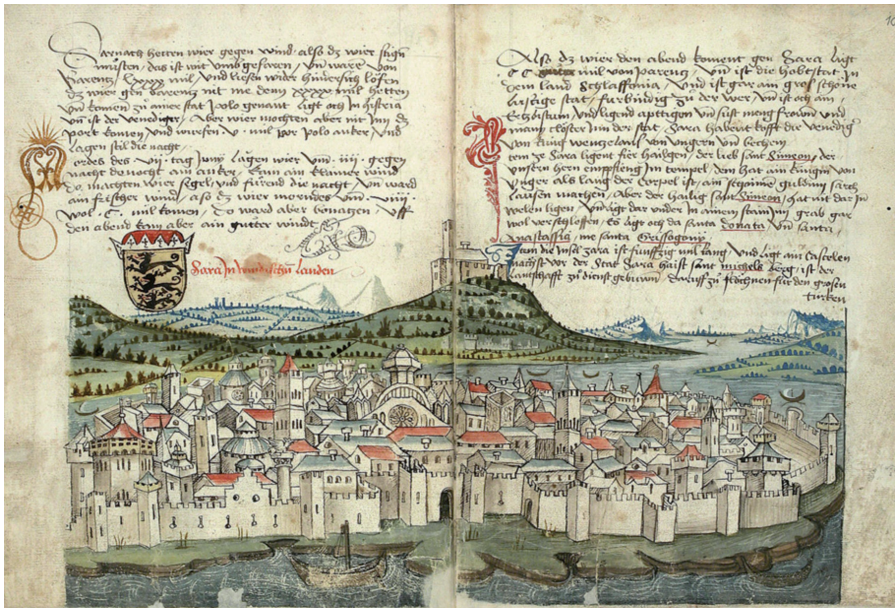 Darnach hetten wier gegen wind also dz wier
müsten, das ist wit umb gefaren, und ware von
Parentz, lxxxx mil, und liesen wider hindersich lofen
dz wier gen parentz nit me denn xxxx mil hetten
und komen zu ainer stat polo genant ligt och in histeria
und ist der venediger, Aber wier mochten aber nit inn dz
port komen und wurfen v mil por polo anker und
lagen stil die nacht
Mordes des vii tag Junij lagen wier unn iiii gegen
nacht donocht am anker, kam ain klainer wind
do machten wier segel, und fürend die nacht, und ward
ain frischer wind, also dz wier morndes unn viiii
wol C mil komen, Do ward aber bonatzen uff
den abend kam aber ain gutter windt
Sara In windischn Landen
Also dz wier den abend koment gen Sara ligt
CC mil von parentz, und ist die hobtstat In
dem land Schlaffonia, und ist gar ain gros schöne
lustige stat, fürbündig zu der wer, und ist och ain
Ertzbistum und ligend apttigen und sust mang frowen und
mann closter Inn der stat, Sara habent kofft die venediger
von kung wentzelaus von ungern und bechem
Item ze Sara ligent fier hailgen, der lieb sant Simeon, der
unsern hern empfieng Im tempel, den hat ain küngin von
Unger als lang der Corpel ist, ain guldinn sarch
lausen machen, aber der hailig sant Simeon, hat nit dar In
welen ligen, und ligt dar under In ainem stainin grab gar
wol verschlossen, Es ligt och da santa donata und santa
Anastassia, me santa Grisogony
Item die Insel zara ist fünffzig mil lang, und ligt ain Castelen
nächst vor der Stat Sara haist sant michels berg, ist der
lantschafft zu dienst gebuwen, daruff zu flöchnen für den grosen
turken
10